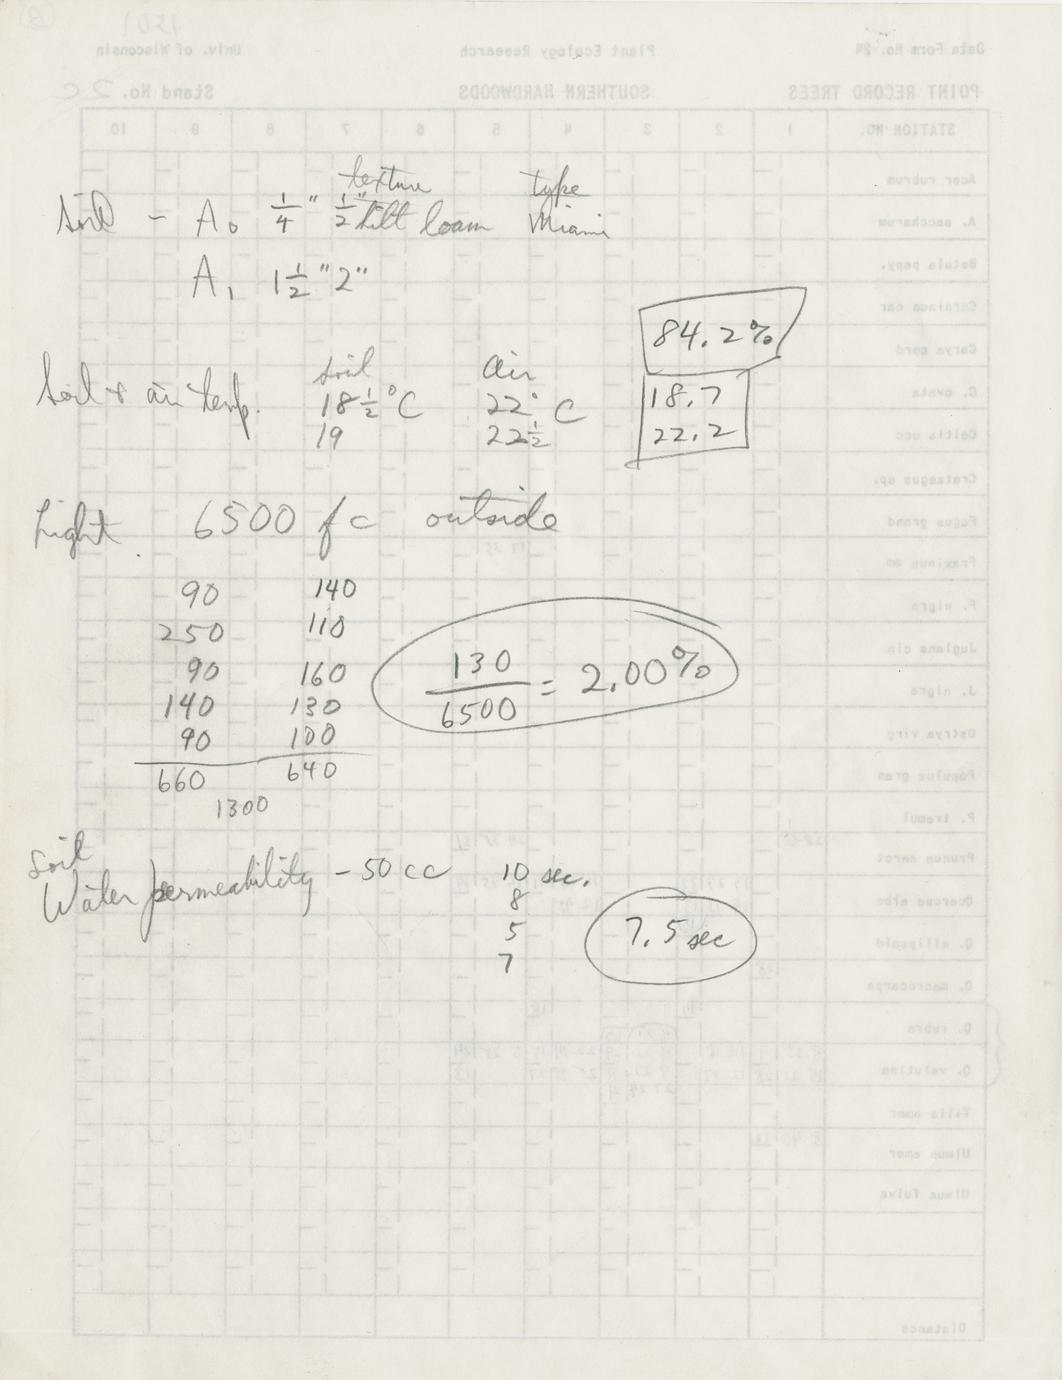 texture type
Soil - A₀ 1/4" 1/2" silt loam Miami
A₁ 1 1/2" 2"
84.2%
soil air
Soil & air temp. 18 1/2 °C 22° C 18.7
19 22 1/2 22.2
Light. 6500 fc outside
90 140
250 110
90 160
140 130
90 100
660 640
1300
130/6500 = 2.00%
Soil
Water permeability - 50 cc 10 sec.
8
5
7
7.5 sec